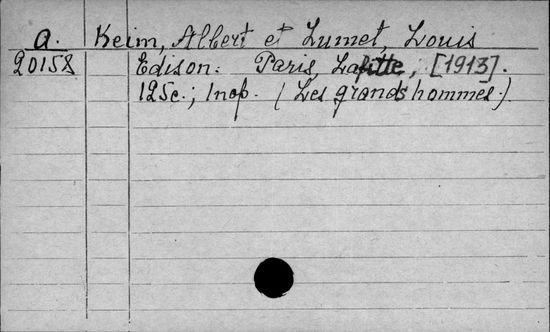 a. Keim, Albert et Lumet, Louis
20158 Edison. Paris, Lafitte, [1913].
125c.; (Les grands hommes.)